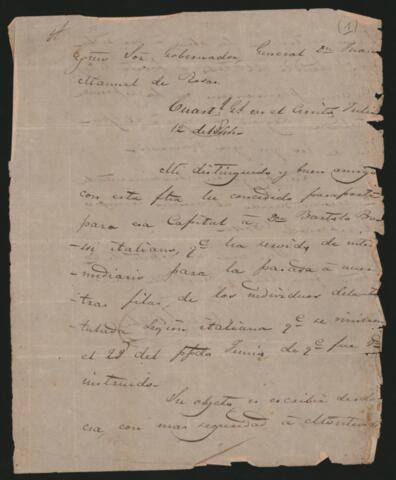 1
Exmo Sor. Gobernador, General Dn Juan
Manuel de Rosas
Cuartl. Gl. en el Cerrito, Julio
12 de
Mi distinguido y buen amigo
con esta fha. he concedido pasaporte
para esa Capital á Dn Bartolo
italiano, qe. ha servido de inter-
-mediario para la pasada á nues-
-tras filas, de los individuos de la ti-
-tulada Legión italiana qe. se
el 29 del ppdo Junio, de qe. fue
instruido.
Su objeto, es escribir desde
esa, con mas seguridad á Montevideo